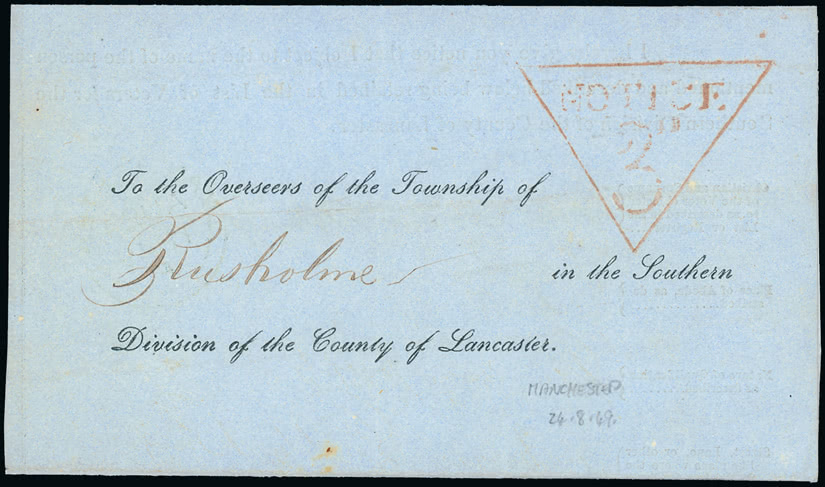 NOTICE
2
To the Overseers of the Township of
Rusholme
in the Southern
Division of the County of Lancaster.
MANCHESTER
24.8.49.